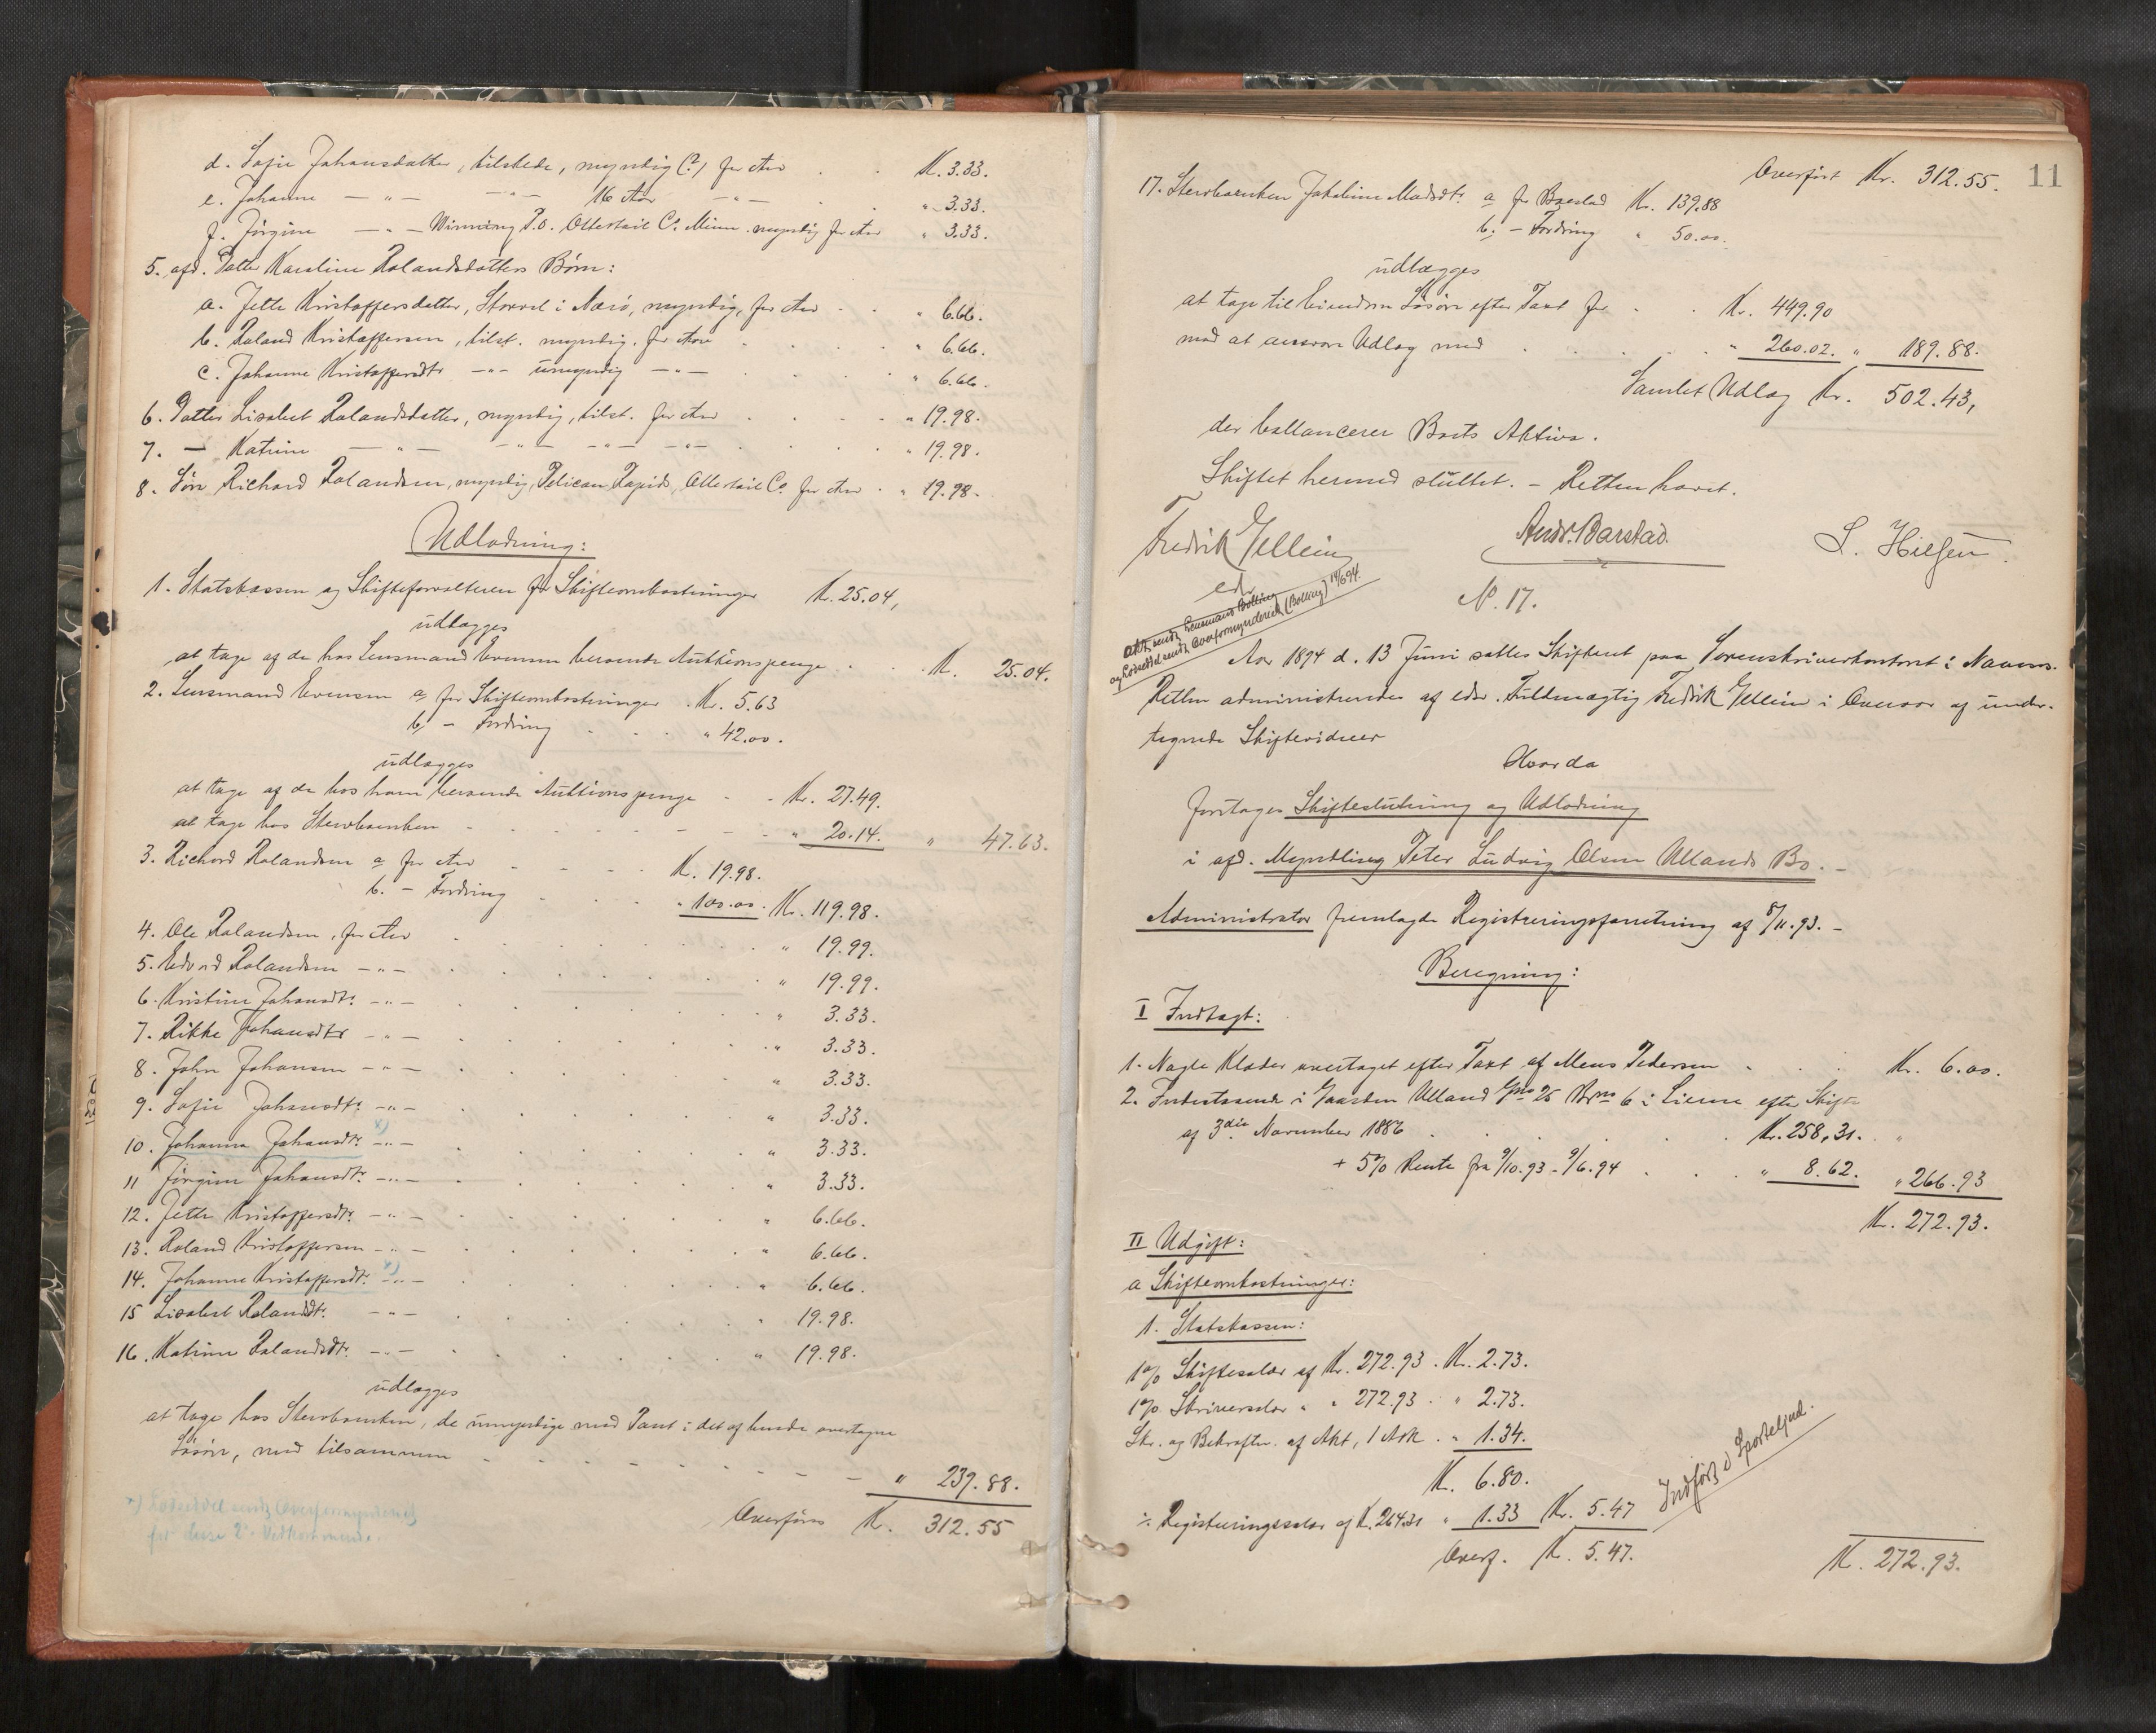 d. Sofie Johansdatter, tilstede, myndig (?) for Arv . . Kr. 3.33.
e. Johanne — " — — " — 16 Aar — " — . . " 3.33.
f. Jørgine — " — Winning P.O. Ottertail Co. Minn. myndig for Arv " 3.33.
5. afd. Datter Karoline Rolandsdatters Børn:
a. Jette Kristoffersdatter, Storvel i Nærø, myndig, for Arv . . " 6.66.
b. Roland Kristoffersen, tilst. myndig. for Arv . . . . " 6.66.
c. Johanne Kristoffersdtr — " — umyndig — " — . . . . " 6.66.
6. Datter Lisabet Rolandsdatter, myndig, tilst. for Arv . . . . " 19.98.
7. — Katrine — " — — " — — " — — " — . . . " 19.98.
8. Søn Richard Rolandsen, myndig, Pelican Rapids, Ottertail Co. for Arv . . " 19.98.
Udlodning:
1. Statskassen og Skifteforvalteren for Skifteomkostninger Kr. 25.04,
udlægges
at tage af de hos Lensmand Evensen beroende Auktionspenge . . . Kr. 25.04.
2. Lensmand Evensen a, for Skifteomkostninger . Kr. 5.63
b, — Fordring . . . " 42.00.
udlægges
at tage af de hos ham beroende Auktionspenge - - Kr. 27.49.
at tage hos Stervboenken - - - - - - - " 20.14. " 47.63.
3. Richard Rolandsen a, for Arv - - - - Kr. 19.98.
b. — Fordring . . . . " 100.00. Kr. 119.98.
4. Ole Rolandsen, for Arv . . . . . . " 19.99.
5. Edvard Rolandsen — " — . . . . . . " 19.99.
6. Kristine Johansdtr. — " — . . . . . . " 3.33.
7. Rikke Johansdtr — " — . . . . . . " 3.33.
8. John Johansen — " — . . . . . . " 3.33.
9. Sofie Johansdtr. — " — . . . . . . " 3.33.
10. Johanna Johansdtr. x) — " — . . . . . " 3.33.
11 Jørgine Johansdtr. — " — . . . . . . " 3.33.
12. Jette Kristoffersdtr. — " — . . . . . " 6.66.
13. Roland Kristoffersen — " — . . . . . " 6.66.
14. Johanne Kristoffersdtr. x) — " — . . . . . " 6.66.
15 Lisabet Rolandsdtr. — " — . . . . . " 19.98.
16. Katrine Rolandsdtr. — " — . . . . . " 19.98.
udlægges
at tage hos Stervboenken, de umyndige med Pant i det af hende overtagne
Løsøre, med tilsammen - - - - - - - - - " 237.88.
Overføres Kr. 312.55
x) Lodseddel sendt Overformynderiet
for disse 2des Vedkommende.
11
Overført Kr. 312.55.
17. Stervboenken Jakobine Madsdtr. a, for Boeslod Kr. 139.88
b, — Fordring " 50.00.
udlægges
at tage til Eiendom Løsøre efter Taxt for . . Kr. 449.90
mod at ansvare Udlæg med . . . . . " 260.02. " 189.88.
Samlet Udlæg Kr. 502.43,
der ballancerer Boets Aktiva.
Skiftet hermed sluttet. — Retten hævet.
Fredrik Gellein
edv.
Andr. Barstad.
L. Hilsen
Akt sendt Lensmand Bolling
og Lodseddel sendt Overformynderiet (Bolling) 14/6 94.
No. 17.
Aar 1894 d. 13 Juni sattes Skifteret paa Sorenskriverkontoret i Namsos.
Retten administreredes af edsv. Fuldmægtig Fredrik Gellein i Overvær af under-
tegnede Skiftevidner
Hvorda
foretoges Skifteslutning og Udlodning
i afd. Myndling Peter Ludvig Olsen Ullands Bo. —
Administrator fremlagde Registreringsforretning af 8/11. 93. —
Beregning:
I Indtægt:
1. Nogle Klæder overtaget efter Taxt af Mons Pedersen . . . Kr. 6.00.
2. Indestaaende i Gaarden Ulland Gno 25 Brno 6 i Lierne efter Skifte
af 3die November 1886 . . . . . . Kr. 258,31. "
+ 5% Rente fra 9/10. 93 - 9/6. 94 . . . " 8.62. " 266.93
Kr. 272.93.
II Udgift:
a Skifteomkostninger:
1. Statskassen:
1% Skiftesalær af Kr. 272.93 . Kr. 2.73.
1% Skriversalær " " 272.93 . " 2.73.
Skr. og Bekræften. af Akt, 1 Ark . " 1.34.
Kr. 6.80.
÷ Registreringssalær af Kr. 264.31 " 1.33 Kr. 5.47
Indført i Sporteljnl.
Overf. Kr. 5.47. Kr. 272.93.